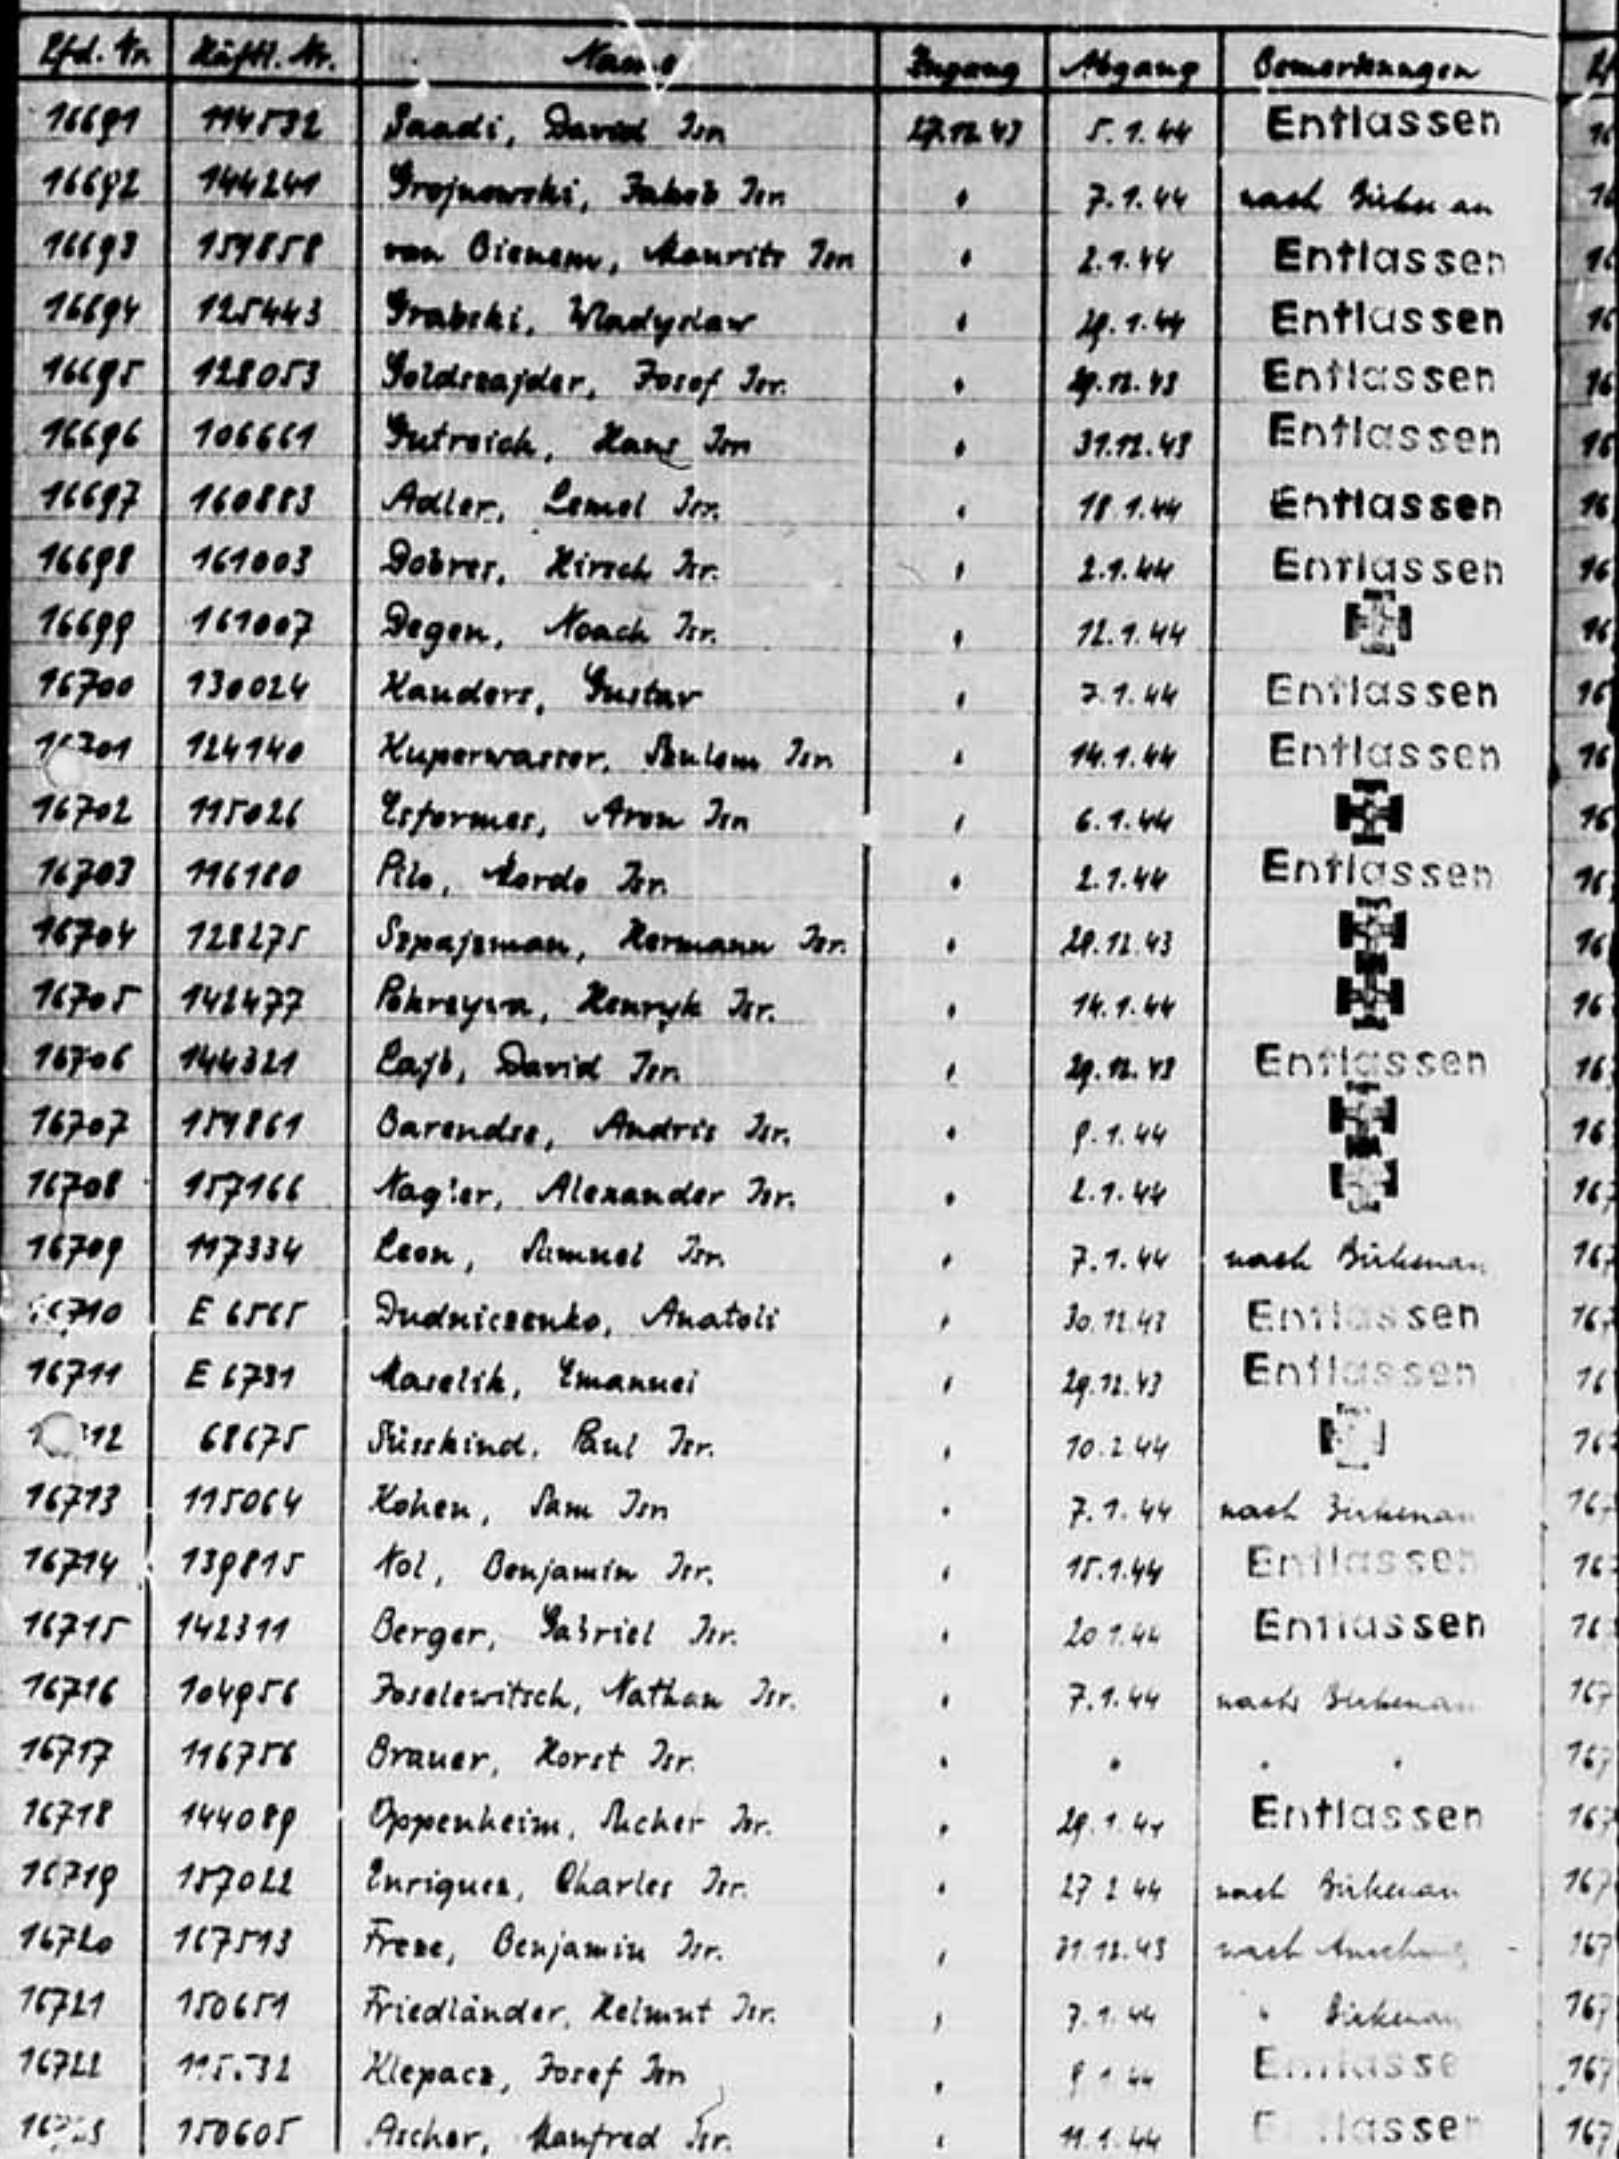 Lfd. Nr. Häftl. Nr. Name Zugang Abgang Bemerkungen
16691 114532 Saadi, David Isr. 27.12.43 5.1.44 Entlassen
16692 144241 Grojnowski, Jakob Isr. " 7.1.44 nach Birkenau
16693 Mauritz Isr. " 2.1.44 Entlassen
16694 125443 Grabski, Wladyslaw " 29.1.44 Entlassen
16695 128053 Goldszajder, Josef Isr. " 29.12.43 Entlassen
16696 106661 Gutreich, Hans Isr. " 31.12.43 Entlassen
16697 160883 Adler, Lemel Isr. " 18.1.44 Entlassen
16698 161003 Dobrer, Hirsch Isr. " 2.1.44 Entlassen
16699 161007 Degen, Noach Isr. " 12.1.44
16700 130024 Handers, Gustav " 7.1.44 Entlassen
16701 124140 Kuperwasser, Szulem Isr. " 14.1.44 Entlassen
16702 115026 Esformes, Aron Isr. " 6.1.44
16703 116180 Pilo, Mordo Isr. " 2.1.44 Entlassen
16704 128275 Szpajzman, Hermann Isr. " 29.12.43
16705 142477 Henryk Isr. " 14.1.44
16706 144321 Lajb, David Isr. " 29.12.43 Entlassen
16707 Barendse, Andris Isr. " 9.1.44
16708 157166 Nagler, Alexander Isr. " 2.1.44
16709 117334 Leon, Samuel Isr. " 7.1.44 nach Birkenau
16710 E 6565 Dudniczenko, Anatoli " 30.12.43 Entlassen
16711 E 6731 Maselik, Emanuel " 29.12.43 Entlassen
68675 Süsskind, Paul Isr. " 10.2.44
16713 115064 Kohen, Sam Isr. " 7.1.44 nach Birkenau
16714 139815 Nol, Benjamin Isr. " 15.1.44 Entlassen
16715 142311 Berger, Gabriel Isr. " 20.1.44 Entlassen
16716 104956 Joselewitsch, Nathan Isr. " 7.1.44 nach Birkenau
16717 116756 Brauer, Horst Isr. " " " "
16718 144089 Oppenheim, Sucher Isr. " 29.1.44 Entlassen
16719 157022 Enriques, Charles Isr. " 27.2.44 nach Birkenau
16720 167513 Frese, Benjamin Isr. " 31.12.43 nach
16721 150651 Friedländer, Helmut Isr. " 7.1.44 " Birkenau
16722 Klepacz, Josef Isr. " 9.1.44 Entlassen
150605 Ascher, Manfred Isr. " 11.1.44 Entlassen